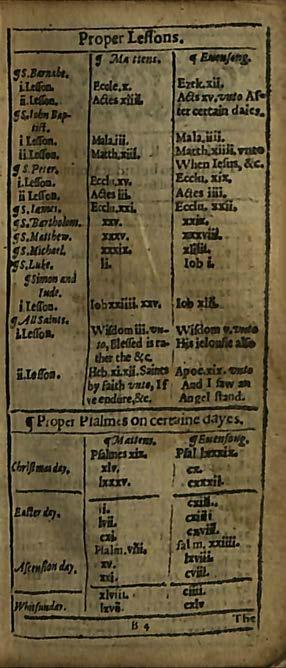 Proper Lessons.
¶ Mattens. ¶ Euensong.
¶S. Barnabe.
i. Lesson. Eccle. x. Ezek. xii.
ii. Lesson. Actes xiiii. Actes xv. vnto Af-
ter certain daies.
¶S. Iohn Bap-
tist.
i Lesson. Mala. iii. Mala. iiii.
ii. Lesson. Matth. xiii. Matth. xiiii. vnto
When Iesus, &c.
¶S. Peter.
i. Lesson. Ecclu. xv. Ecclu. xix.
ii Lesson. Actes iii. Actes iiii.
¶S. Iames. Ecclu. xxi. Ecclu. xxii.
¶S. Bartholom. xxv. xxix.
¶S. Matthew. xxxv. xxxviii.
¶S. Michael. xxxix. xliiii.
¶S. Luke. li. Iob i.
¶Simon and
Iude.
i. Lesson. Iob xxiiii. xxv. Iob xlii.
¶ All Saints.
i. Lesson. Wisdom iii. vn- Wisdom v. vnto
to, Blessed is ra- His jelousie also
ther the &c.
ii. Lesson. Heb. xi. xii. Saints Apoc. xix. vnto
by faith vnto, If And I saw an
ye endure, &c. Angel stand.
¶ Proper Psalmes on certaine dayes.
¶ Mattens. ¶ Euensong.
Psalmes xix. Psal. lxxxix.
Christmas day. xlv. cx.
lxxxv. cxxxii.
ii. cxiii.
Easter day. lvii. cxiiii
cxi. cxviii.
Psalm. viii. salm. xxiiii.
Ascension day. xv. lxviii.
xxi. cviii.
xlviii. ciiii.
Whitsunday. lxvii. cxlv
B 4 The